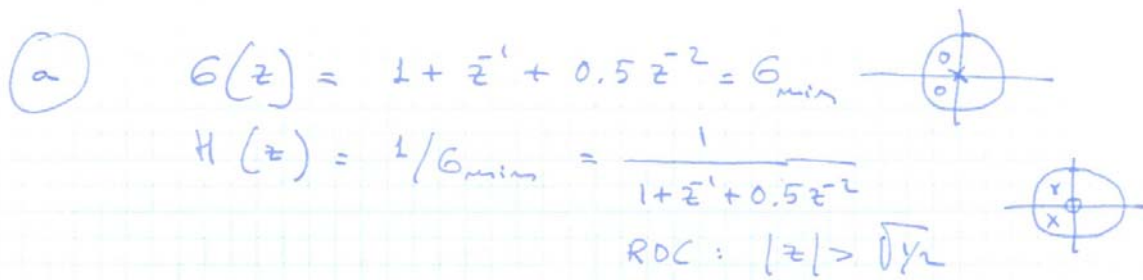 a G(z) = 1 + z⁻¹ + 0.5 z⁻² = G_min
H(z) = 1/G_min = 1 / (1 + z⁻¹ + 0.5 z⁻²)
ROC: |z| > √1/2